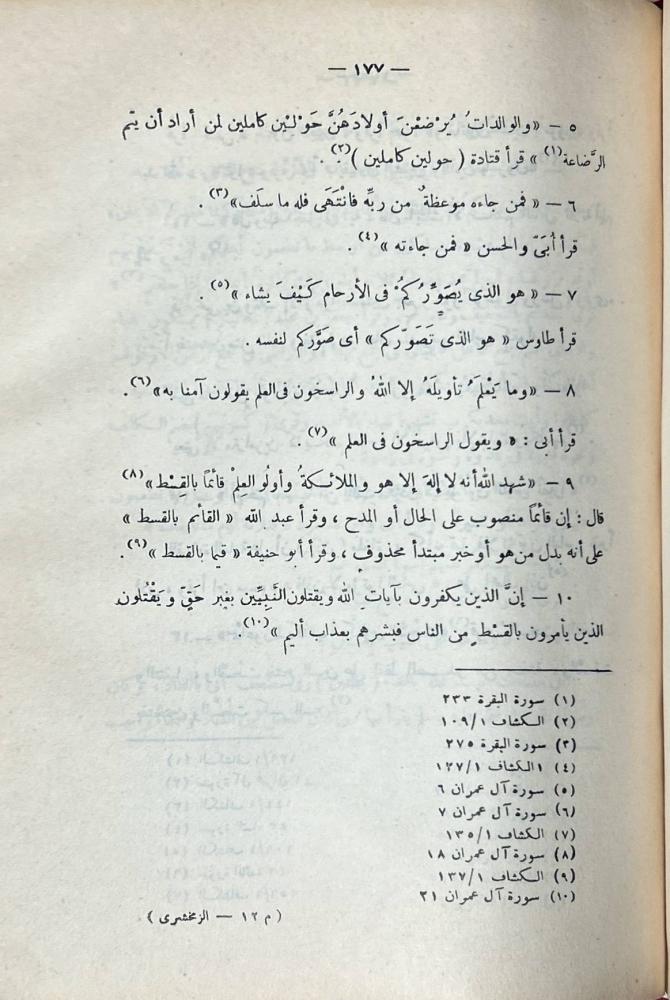 — ١٧٧ —
٥ — «والوالداتُ يُرْضعْنَ أولادَهُنَّ حَوْلَيْن كاملين لمن أراد أن يتم
الرَّضاعة(١)» قرأ قتادة ( حولين كاملين )(٢).
٦ — « فمن جاءه موعظةٌ من ربِّه فانْتَهَى فله ما سلَف»(٣).
قرأ أُبَىّ والحسن « فمن جاءته »(٤).
٧ — « هو الذى يُصَوِّرُكُمْ فى الأرحام كَيْفَ يشاء »(٥).
قرأ طاوس « هو الذى تَصَوّركم » أى صَوَّركم لنفسه .
٨ — «وما يَعْلَمُ تأويلَهُ إلا اللهُ والراسخون فى العلم يقولون آمنا به»(٦).
قرأ أبى : « ويقول الراسخون فى العلم »(٧).
٩ — «شهد اللهُ أنه لا إلهَ إلا هو والملائكةُ وأولُو العِلْمِ قائماً بالقسْط»(٨)
قال : إن قائماً منصوب على الحال أو المدح ، وقرأ عبد الله « القائم بالقسط »
على أنه بدل من هو أو خبر مبتدأ محذوف ، وقرأ أبو حنيفة « قيما بالقسط »(٩).
١٠ — إنَّ الذين يكفرون بآيات الله ويقتلون النَّبِيِّين بغير حَقّ ويَقْتُلون
الذين يأمرون بالقسْط من الناس فبشرهم بعذاب أليم »(١٠).
(١) سورة البقرة ٢٣٣
(٢) الكشاف ١/١٠٩
(٣) سورة البقرة ٢٧٥
(٤) الكشاف ١/١٢٧
(٥) سورة آل عمران ٦
(٦) سورة آل عمران ٧
(٧) الكشاف ١/١٣٥
(٨) سورة آل عمران ١٨
(٩) الكشاف ١/١٣٧
(١٠) سورة آل عمران ٢١
( م ١٢ — الزمخشرى )